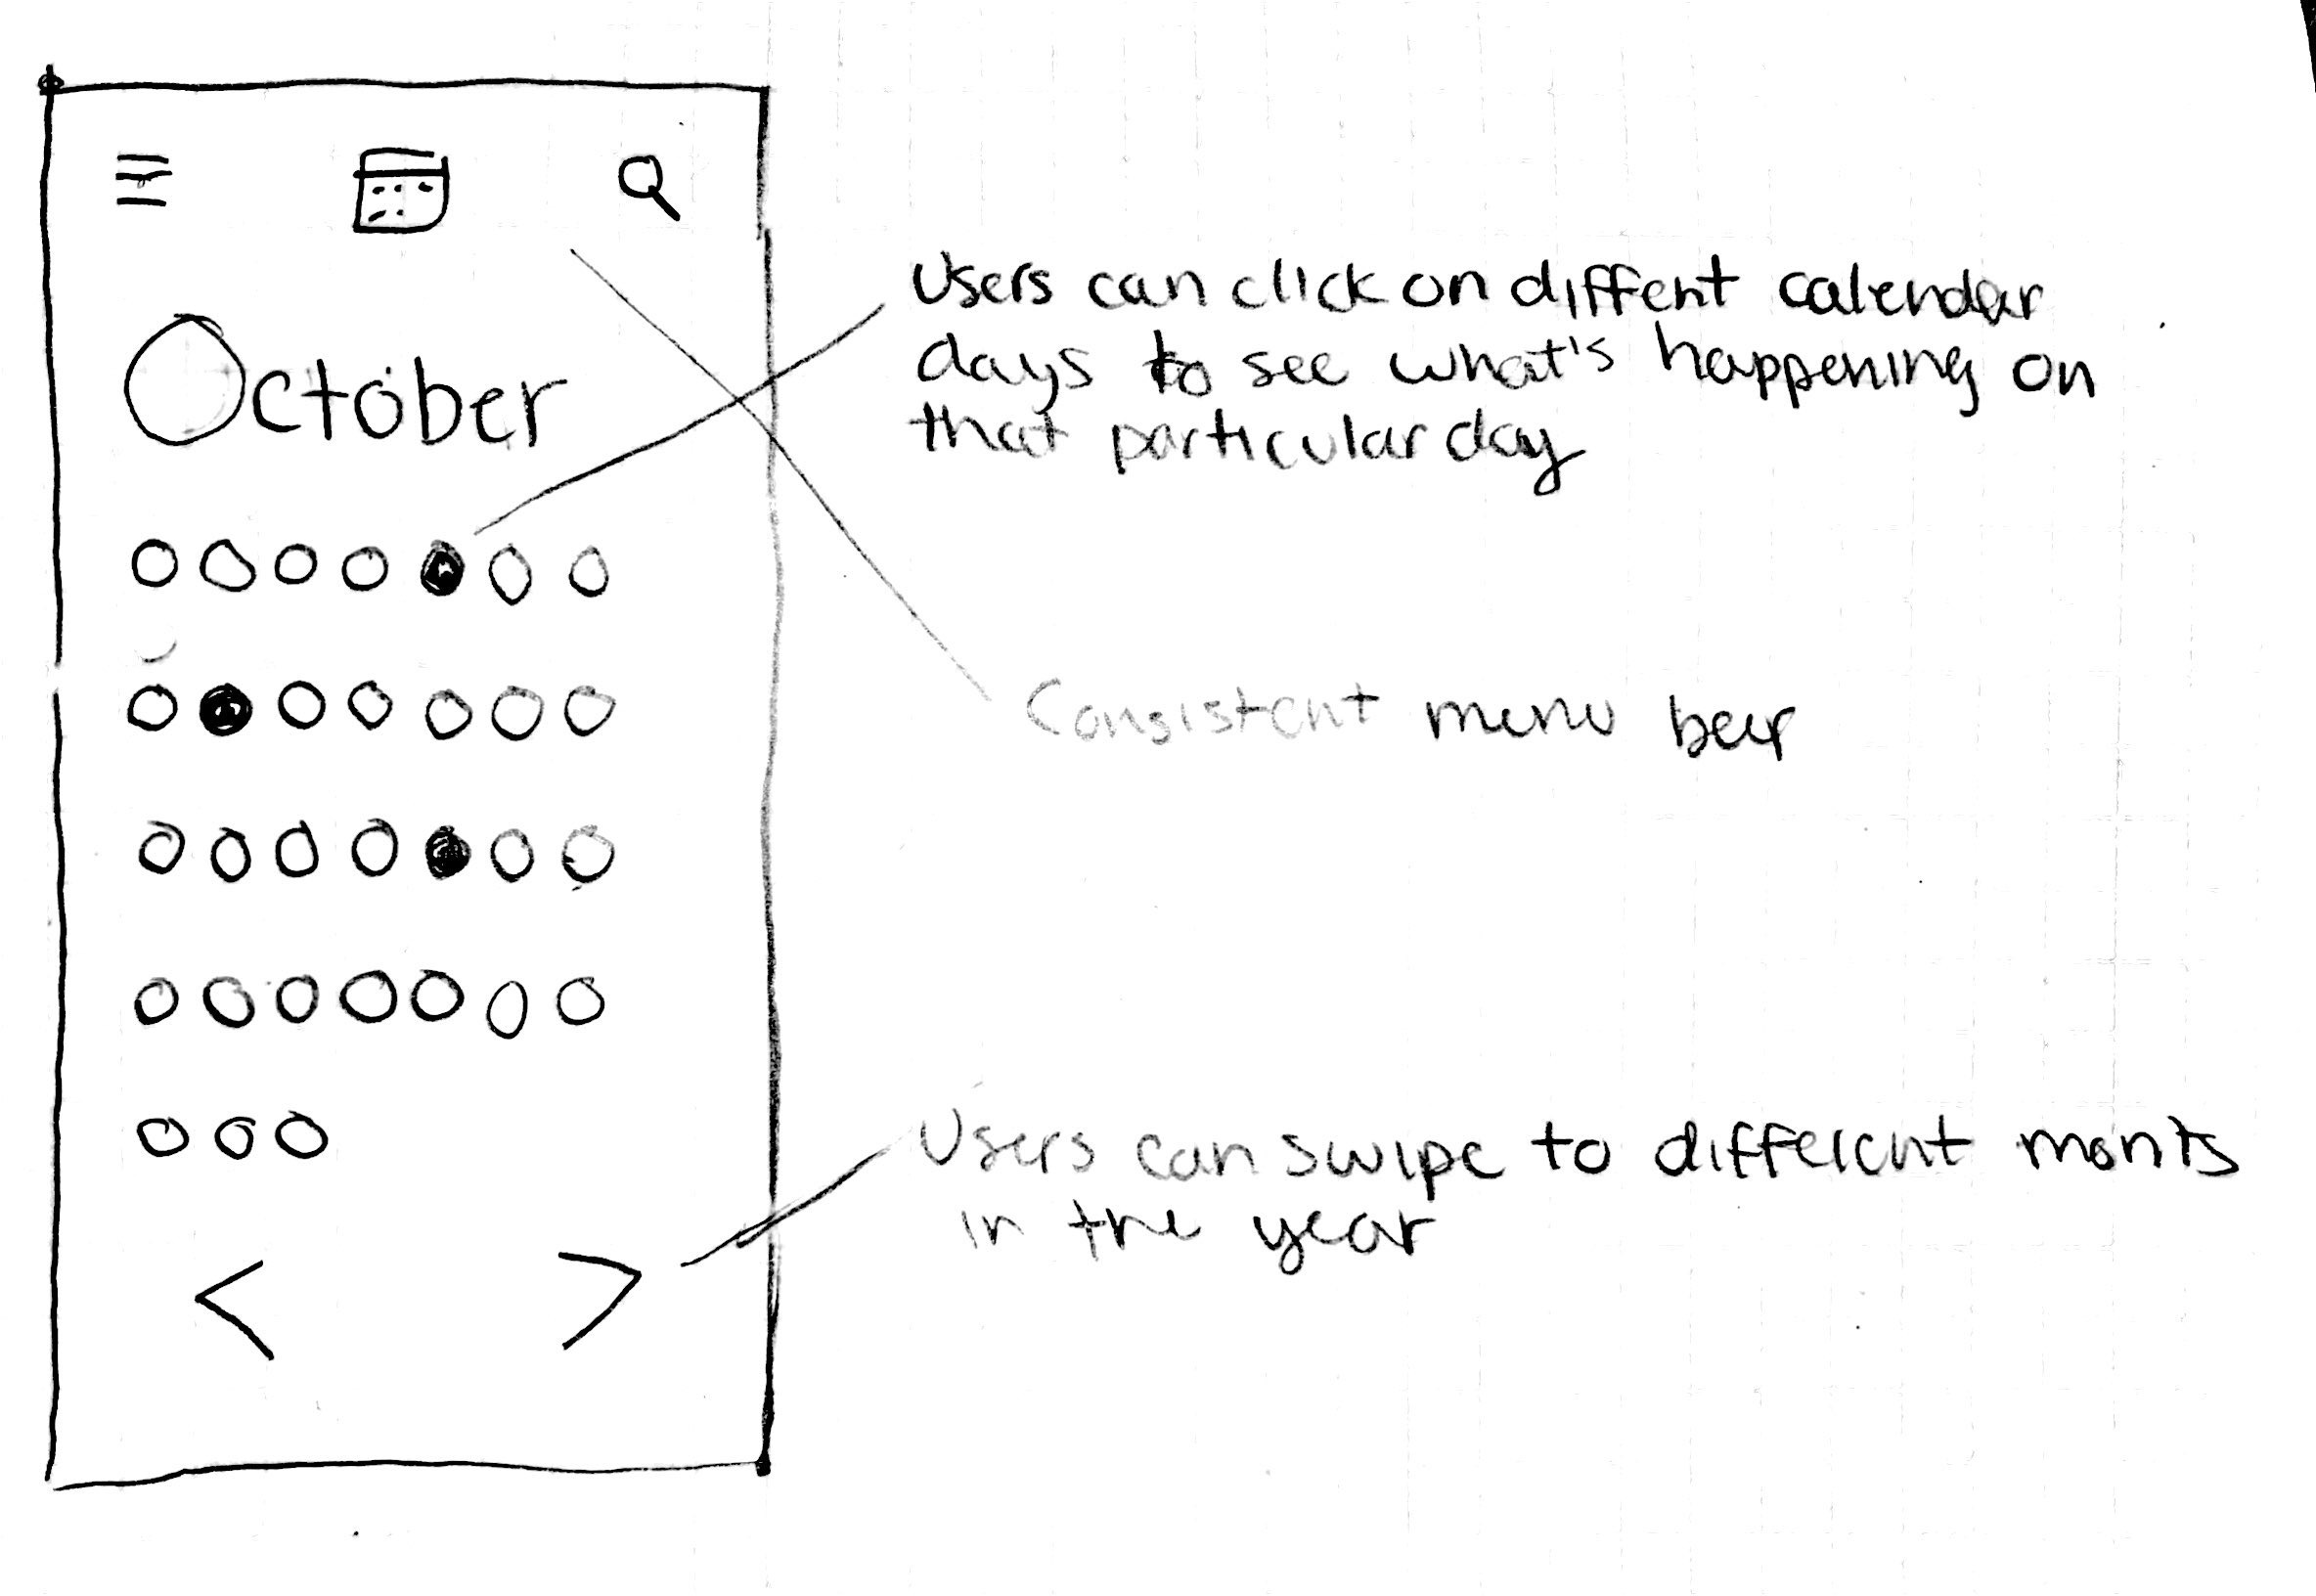 October
Users can click on diffent calendar
days to see what's happening on
that particular day
Consistent menu bar
Users can swipe to different monts
in the year